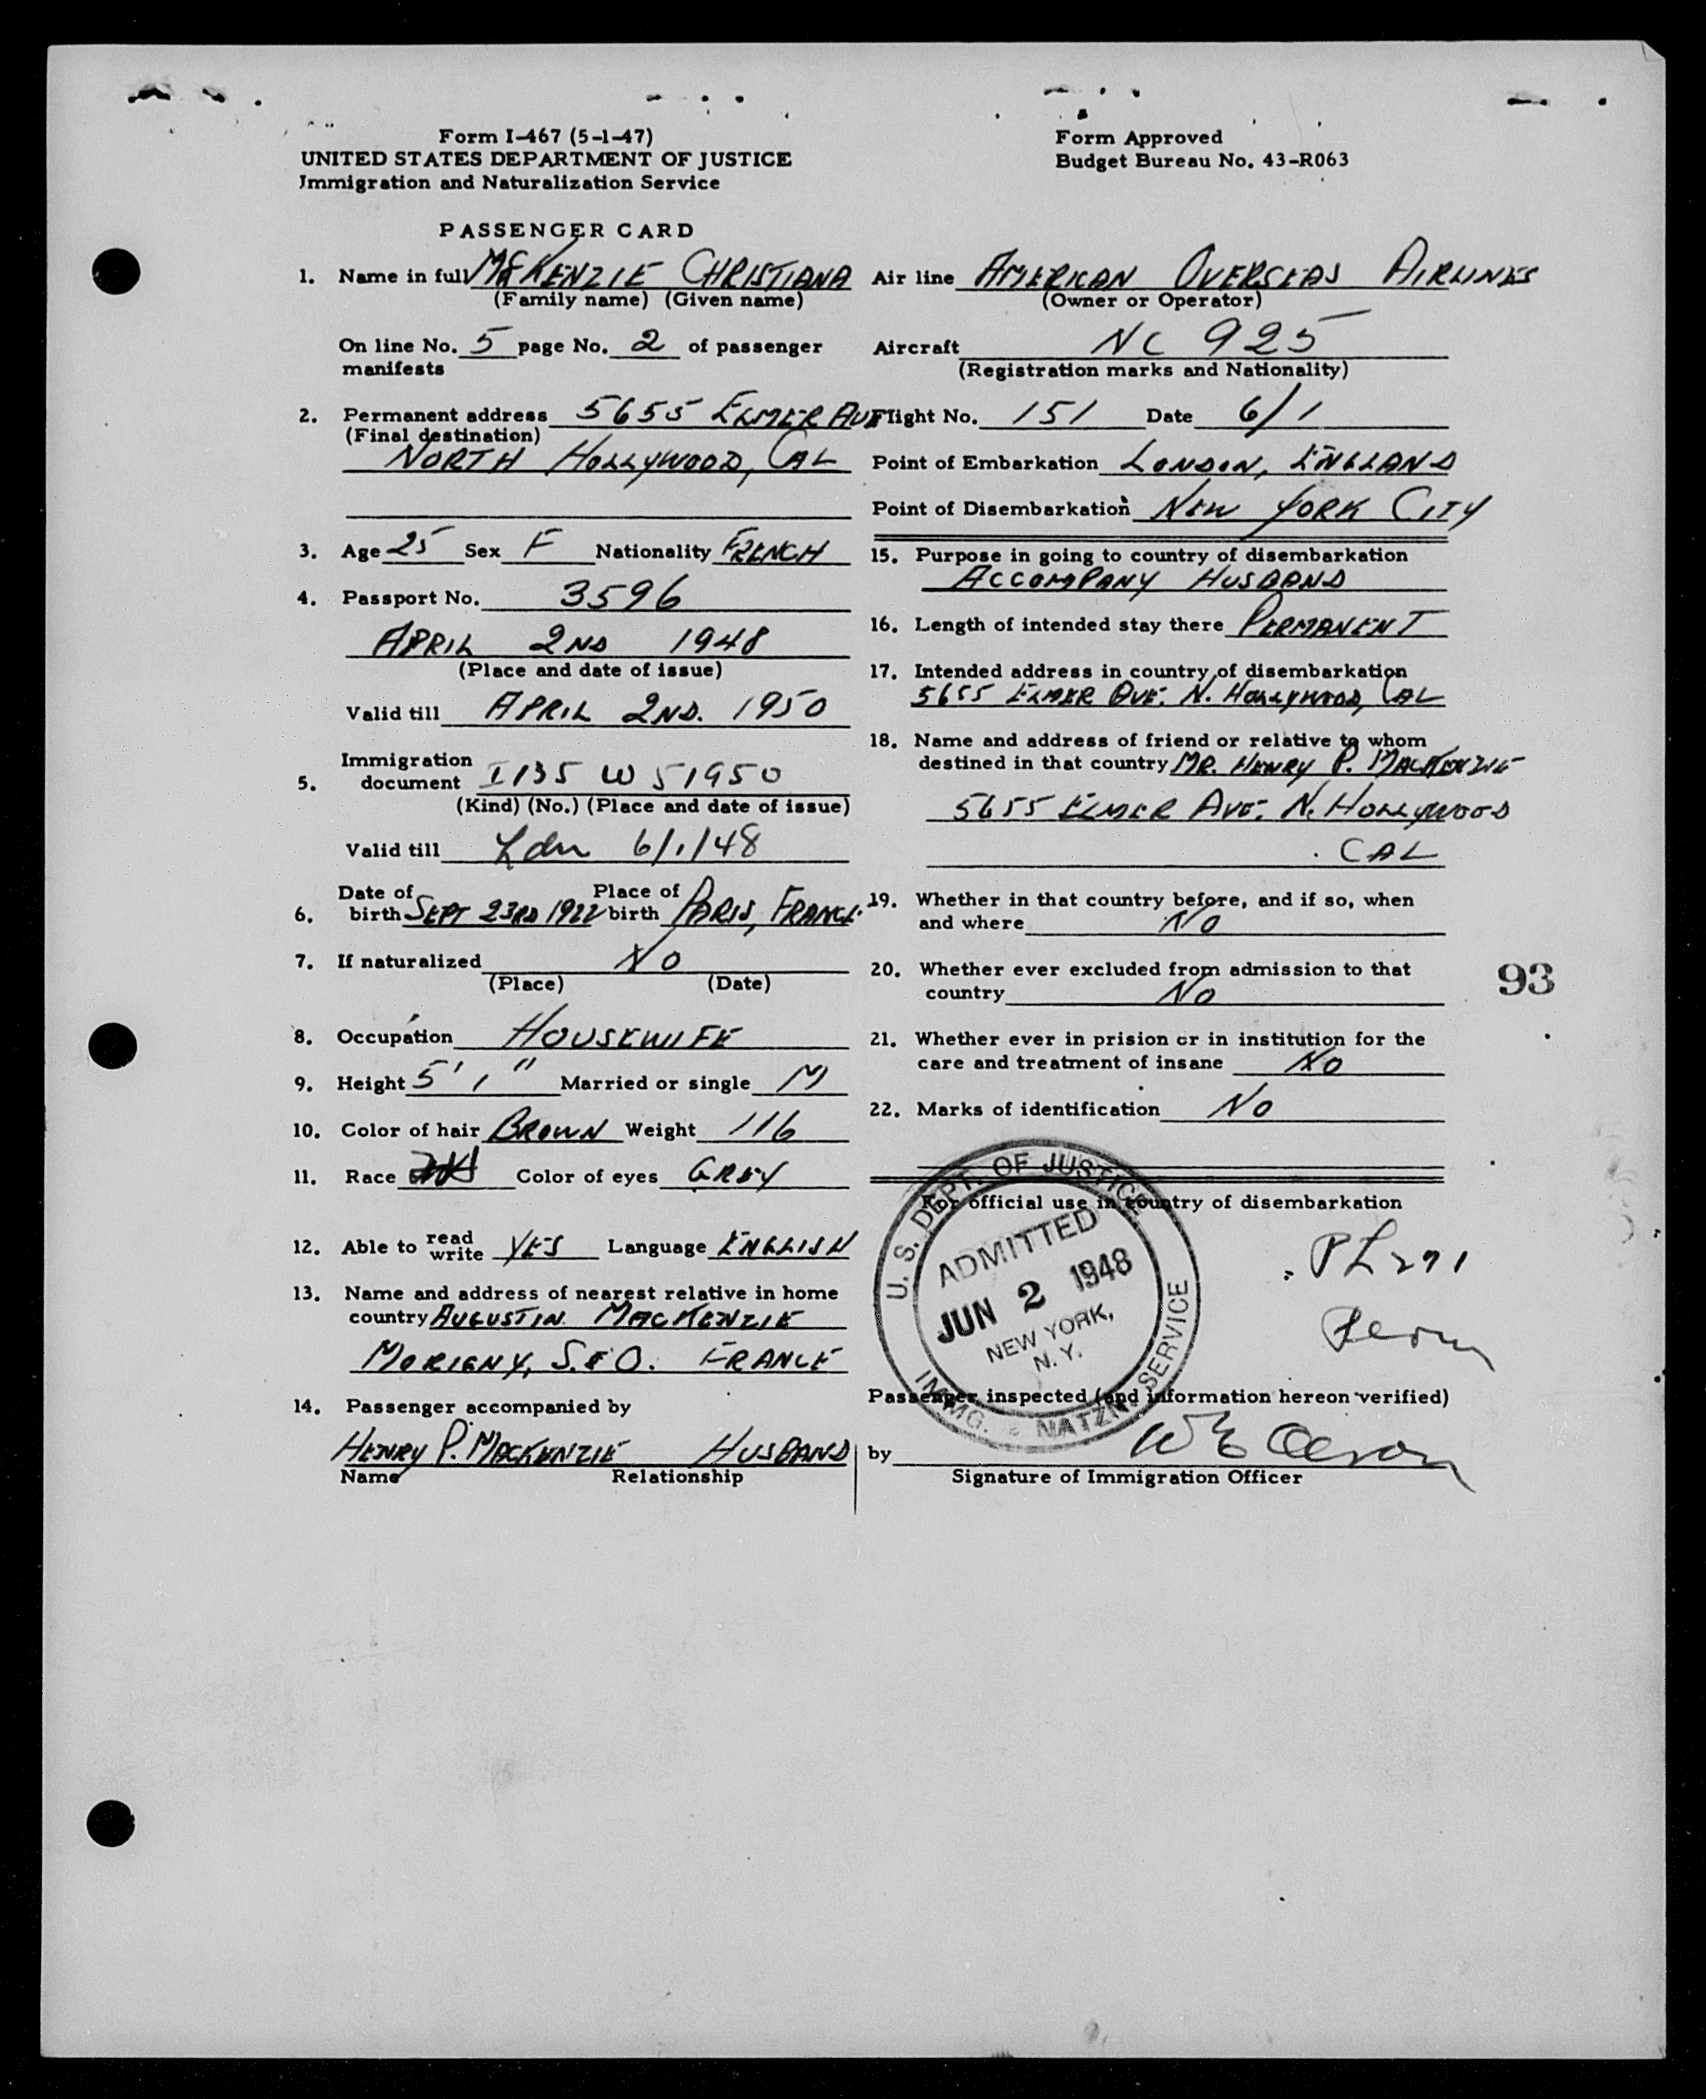 Form I-467 (5-1-47)
UNITED STATES DEPARTMENT OF JUSTICE
Immigration and Naturalization Service
Form Approved
Budget Bureau No. 43-R063
PASSENGER CARD
1. Name in full McKENZIE CHRISTIANA
(Family name) (Given name)
On line No. 5 page No. 2 of passenger
manifests
2. Permanent address 5655 ELMER AVE
(Final destination)
NORTH HOLLYWOOD, CAL
3. Age 25 Sex F Nationality FRENCH
4. Passport No. 3596
APRIL 2ND 1948
(Place and date of issue)
Valid till APRIL 2ND. 1950
Immigration
5. document I135 W 51950
(Kind) (No.) (Place and date of issue)
Valid till Ldn 6/1/48
Date of Place of
6. birth SEPT 23RD 1922 birth PARIS, FRANCE
7. If naturalized NO
(Place) (Date)
8. Occupation HOUSEWIFE
9. Height 5' 1" Married or single M
10. Color of hair BROWN Weight 116
11. Race Color of eyes GREY
12. Able to read write YES Language ENGLISH
13. Name and address of nearest relative in home
country AUGUSTIN MACKENZIE
MORIGNY, S. & O. FRANCE
14. Passenger accompanied by
HENRY P. MACKENZIE HUSBAND
Name Relationship
Air line AMERICAN OVERSEAS AIRLINES
(Owner or Operator)
Aircraft NC 925
(Registration marks and Nationality)
Flight No. 151 Date 6/1
Point of Embarkation LONDON, ENGLAND
Point of Disembarkation NEW YORK CITY
15. Purpose in going to country of disembarkation
ACCOMPANY HUSBAND
16. Length of intended stay there PERMANENT
17. Intended address in country of disembarkation
5655 ELMER AVE. N. HOLLYWOOD, CAL
18. Name and address of friend or relative to whom
destined in that country MR. HENRY P. MACKENZIE
5655 ELMER AVE. N. HOLLYWOOD
CAL
19. Whether in that country before, and if so, when
and where NO
20. Whether ever excluded from admission to that
country NO
93
21. Whether ever in prision or in institution for the
care and treatment of insane NO
22. Marks of identification NO
For official use in country of disembarkation
U. S. DEPT. OF JUSTICE
ADMITTED
JUN 2 1948
NEW YORK,
N. Y.
IMMG. & NATZN. SERVICE
PL 271
Passenger inspected (and information hereon verified)
by
Signature of Immigration Officer